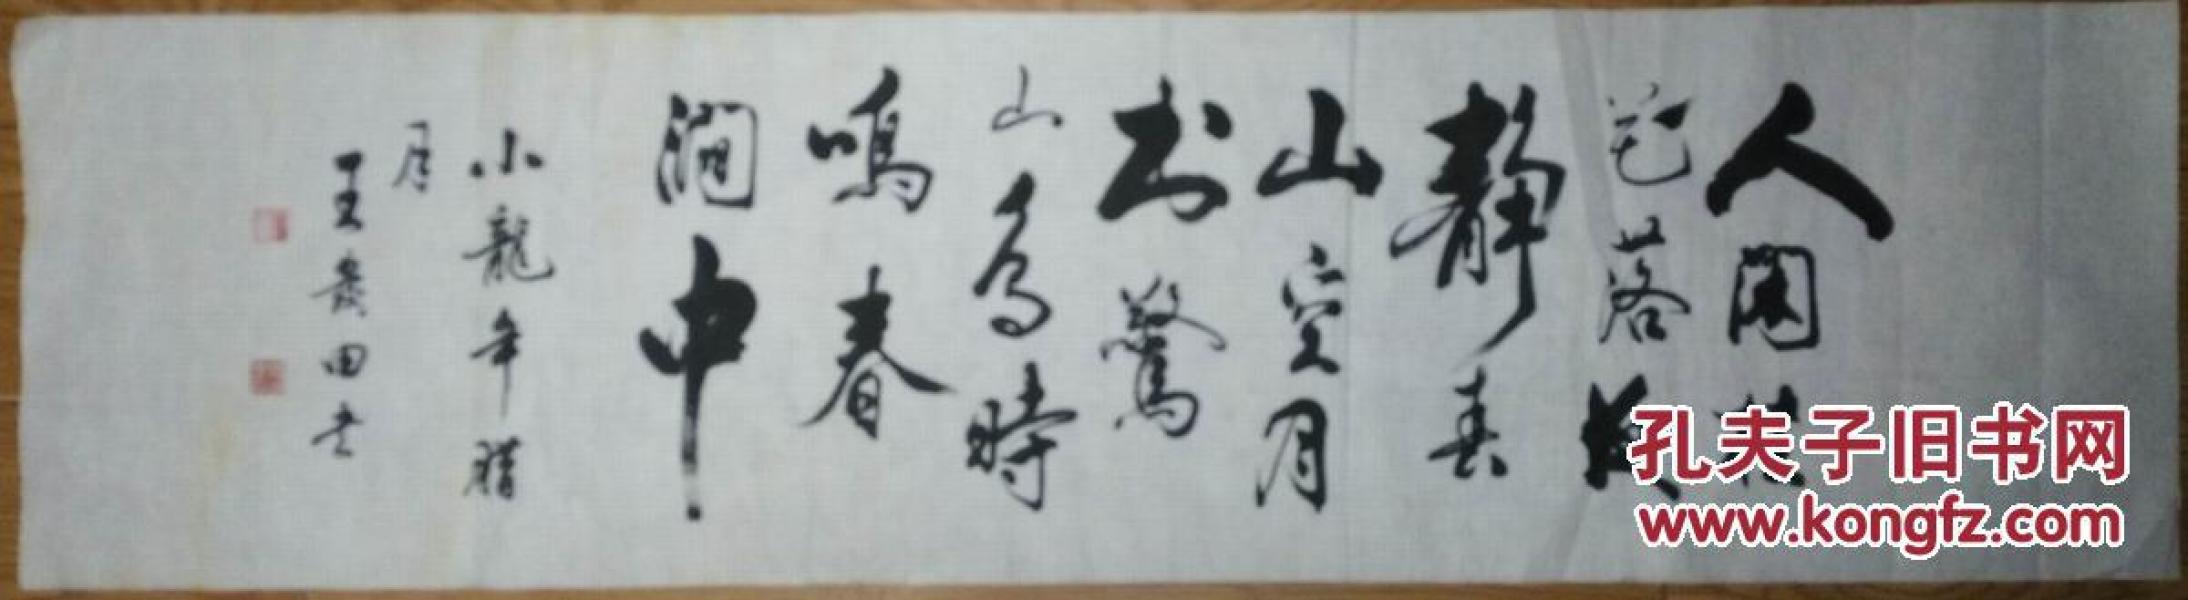 人閑桂
花落夜
靜春
山空月
出驚
山鳥時
鳴春
澗中
小龍年臘
月
王貴田书
孔夫子旧书网
www.kongfz.com